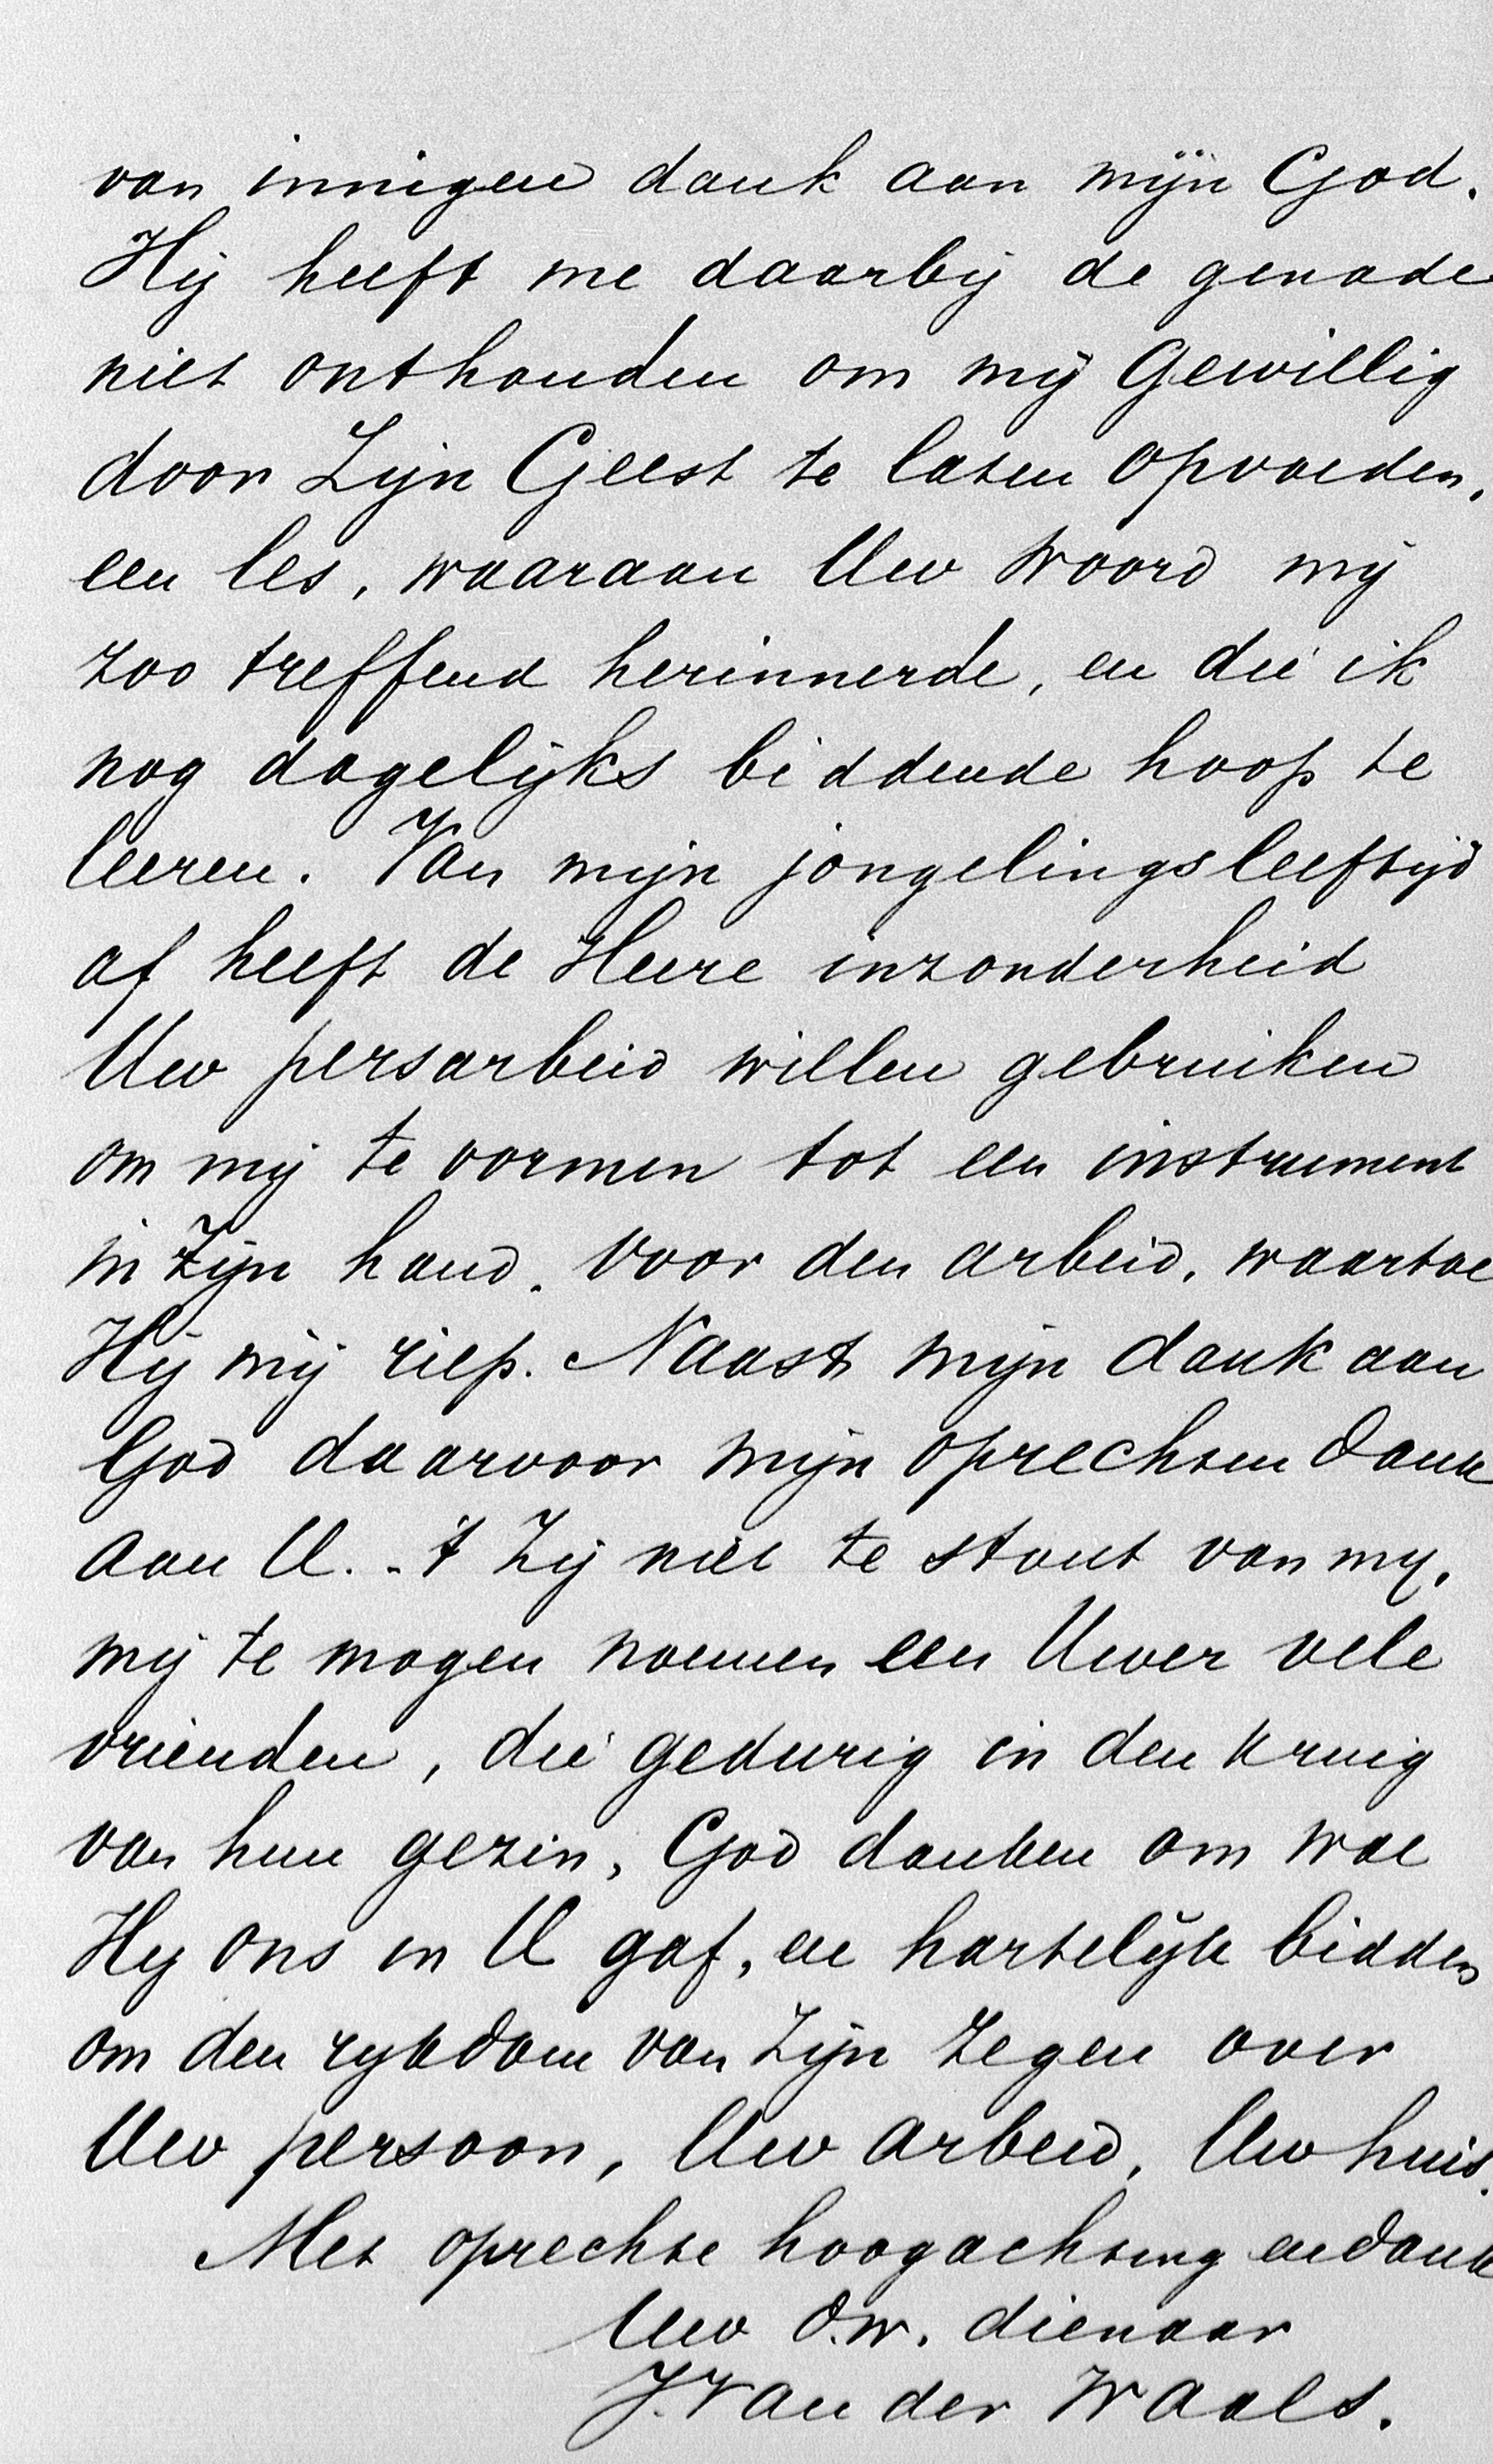 van innigen dank aan mijn God.
Hij heeft me daarbij de genade
niet onthouden om mij gewillig
door Zijn Geest te laten opvoeden,
een les, waaraan Uw woord mij
zoo treffend herinnerde, en die ik
nog dagelijks biddende hoop te
leeren. Van mijn jongelingsleeftijd
af heeft de Heere inzonderheid
Uw persarbeid willen gebruiken
om mij te vormen tot een instrument
in Zijn hand, voor den arbeid, waartoe
Hij mij riep. Naast mijn dank aan
God daarvoor mijn oprechten dank
aan U. - 't Zij niet te stout van mij,
mij te mogen noemen een Uwer vele
vrienden, die gedurig in den kring
van hun gezin, God danken om wat
Hij ons in U gaf, en hartelijk bidden
om den rijkdom van Zijn zegen over
Uw persoon, Uw arbeid, Uw huis.
Met oprechte hoogachting en dank
Uw d.w. dienaar
J. Van der Waals.